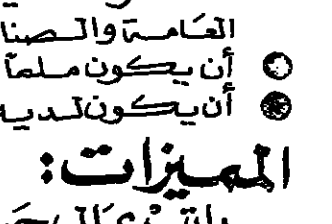 العامة والصنا
أن يكون ملماً
أن يكون لديـ
المميزات: